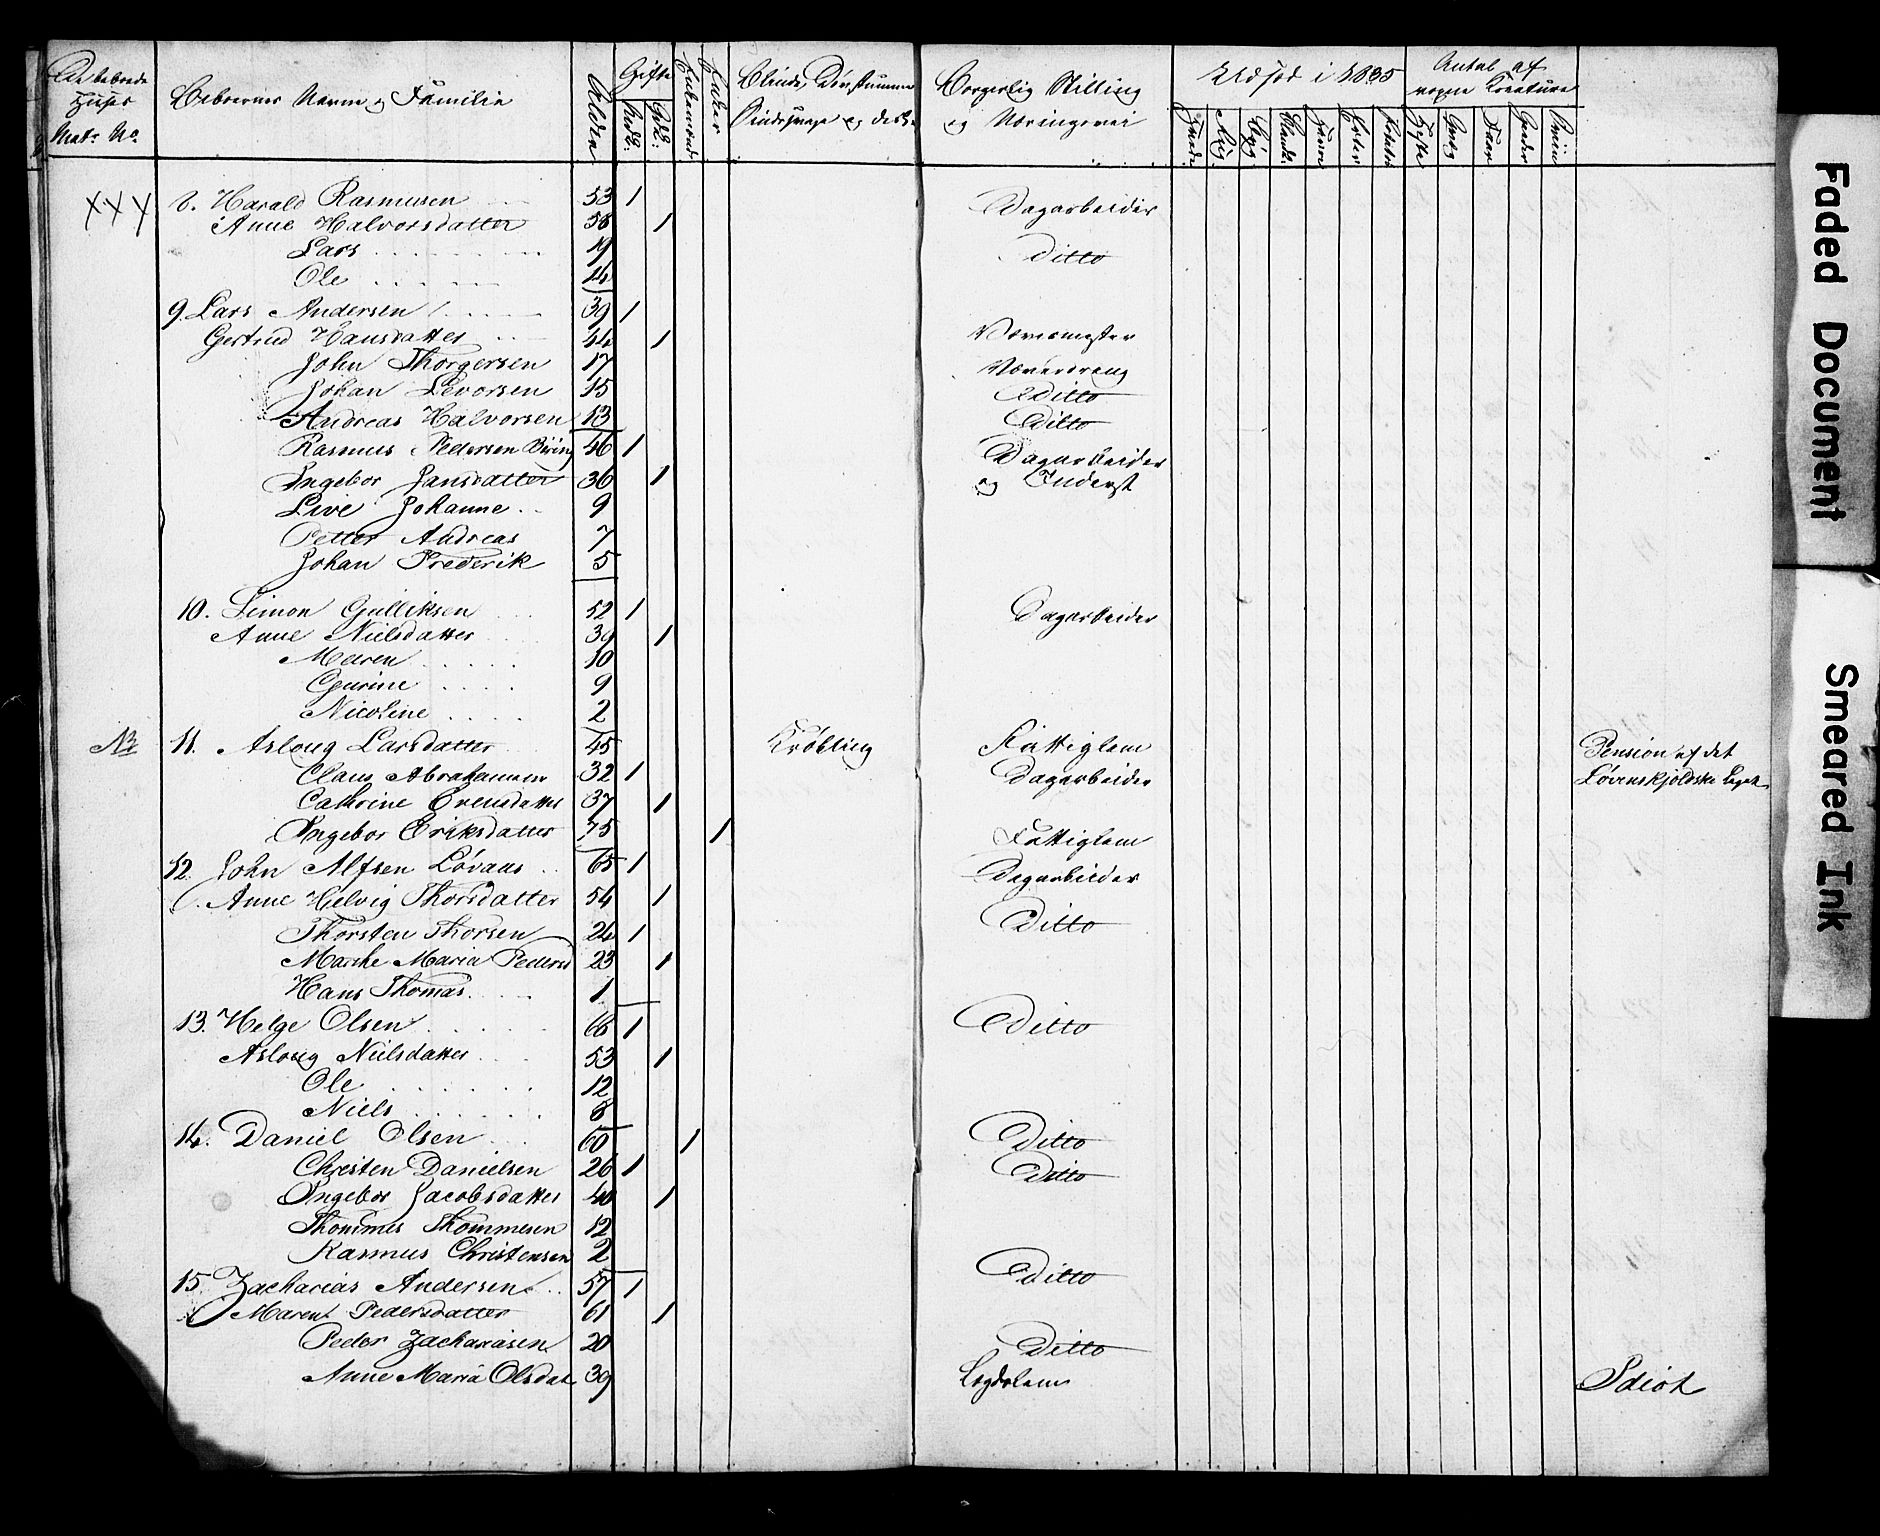 De beboede Huses Mats No.
Beboernes Navn og Familie
Alder
Gifte
Mdk:
Qvk:
Enkemænd
Enker
Blinde, Døvstumme
Sindssvage og
Borgerlig Stilling
og Næringsvei
Udsæd i 1835
Hvede
Rug
Byg
Blandk.
Havre
Erter
Poteter
Antal af
Kreature
Heste
Qvæg
Faar
Geeder
Sviin
8. Harald Rasmusen 53 1 Dagarbeider
Anne Halvorsdatter 58 1
Lars 19 Ditto
Ole 14
9. Lars Andersen 39 1
Gertrud Hansdatter 44 1 Vævermester
John Thorgersen 17 Væverdreng
Johan Levorsen 15 Ditto
Andreas Halvorsen 13 Ditto
Rasmus Pedersen Biring 46 1 Dagarbeider
Ingebor Jansdatter 36 1 og Inderst
Live Johanne 9
Petter Andreas 7
Johan Frederik 5
10. Simon Gulliksen 52 1 Dagarbeider
Anne Nielsdatter 39 1
Maren 10
Gurine 9
Nicoline 2
11. Aslong Larsdatter 45 Krøbling Fattiglem Pension af det
Claus Abrahamsen 32 1 Dagarbeider Løvenskjoldske Legat
Cathrine Evensdatter 37 1
Ingebor Eriksdatter 75 1 Fattiglem
12. John Alfsen Løvaas 65 1 Dagarbeider
Anne Helvig Thorsdatter 54 1
Thorsten Thorsen 24 1 Ditto
Marthe Maria Pedersd 23 1
Hans Thomas 1
13. Helge Olsen 66 1 Ditto
Aslong Nielsdatter 53 1
Ole 12
Niels 8
14. Daniel Olsen 60 1 Ditto
Christen Danielsen 26 1 Ditto
Ingebor Jacobsdatter 40 1
Thommes Thommesen 12
Rasmus Christensen 2
15. Zacharias Andersen 57 1 Ditto
Marent Pedersdatter 61 1
Peder Zachariasen 20 Ditto
Anne Maria Olsdat 39 Legdslem Idiot
Faded Document
Smeared Ink